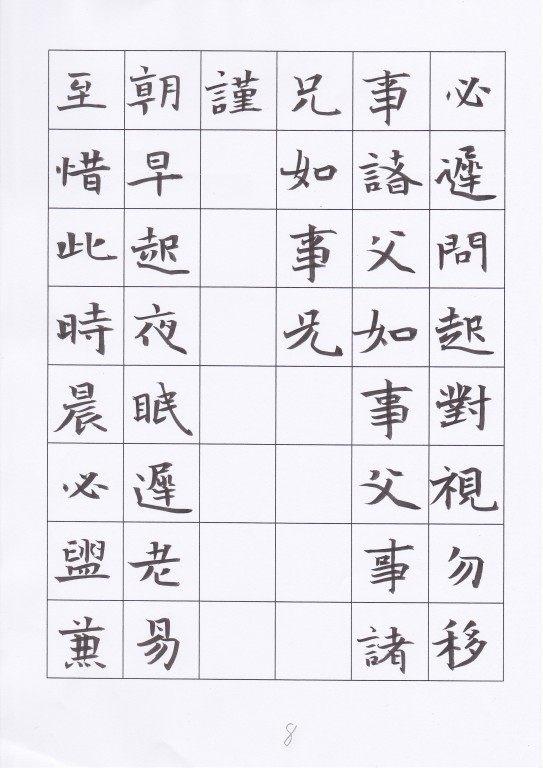 必遲問起對視勿移
事諸父如事父事諸
兄如事兄
謹
朝早起夜眠遲老易
至惜此時晨必盥兼
8